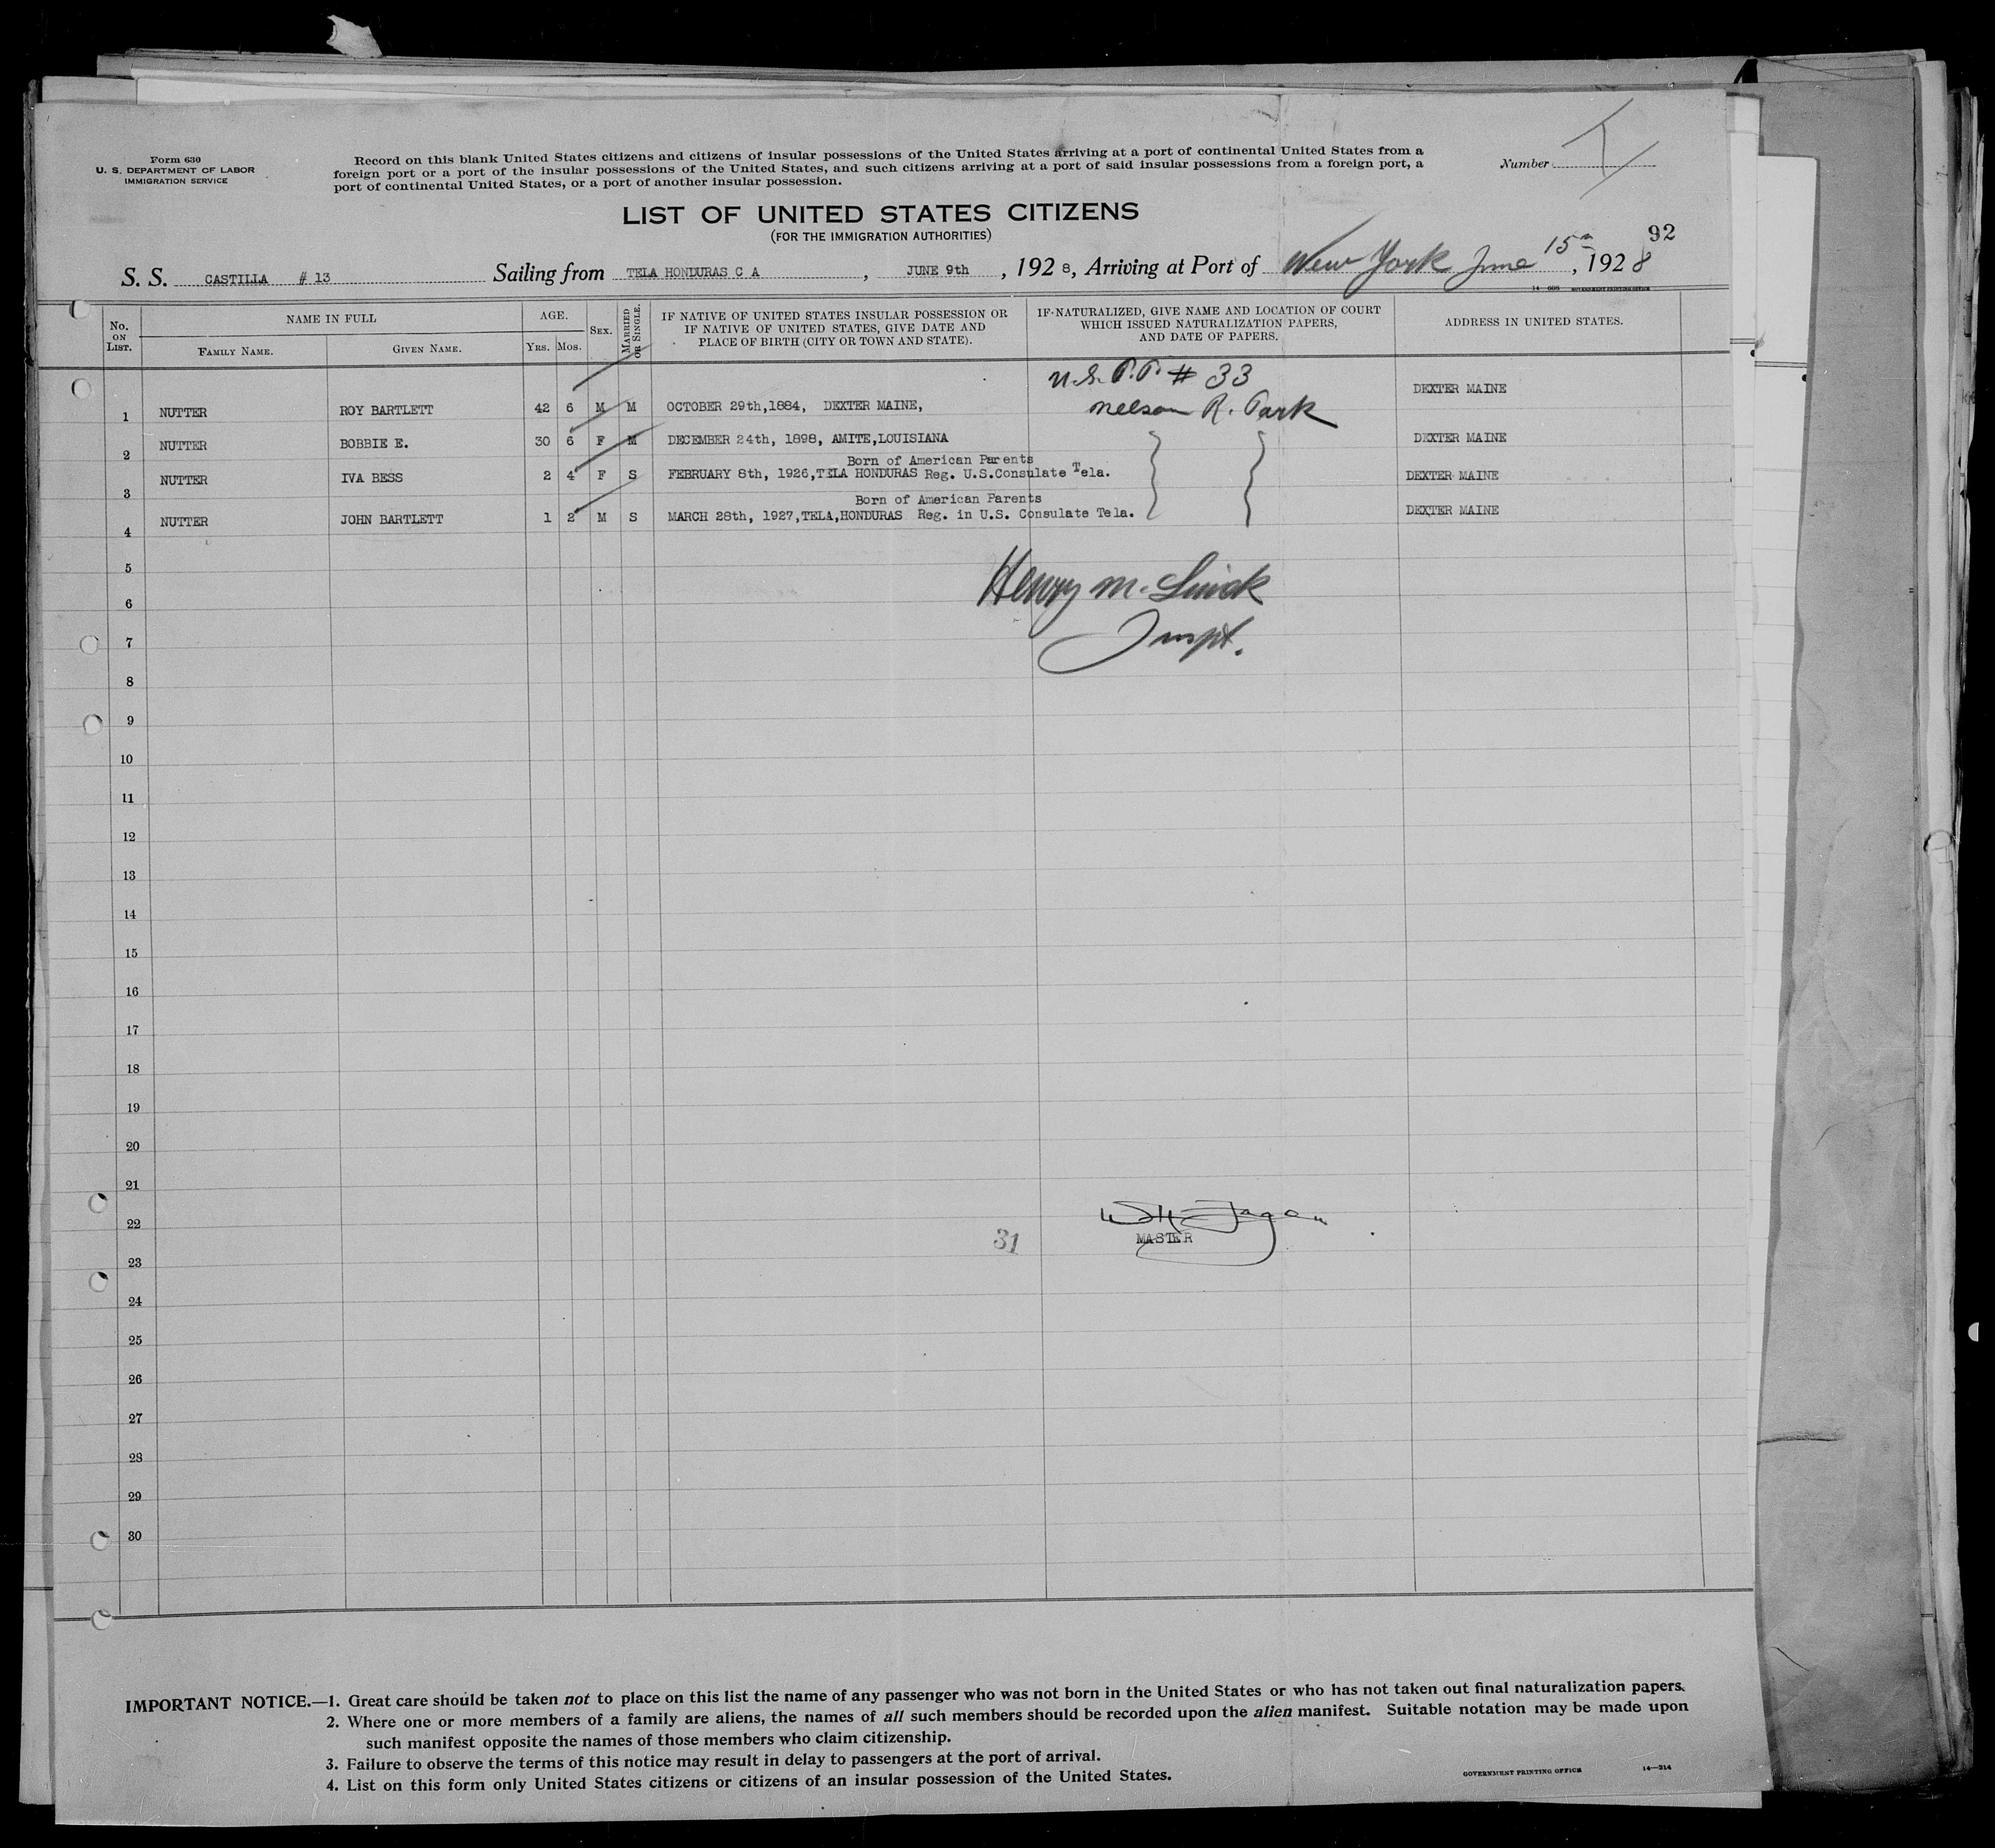 Form 630
U. S. DEPARTMENT OF LABOR
IMMIGRATION SERVICE
Record on this blank United States citizens and citizens of insular possessions of the United States arriving at a port of continental United States from a
foreign port or a port of the insular possessions of the United States, and such citizens arriving at a port of said insular possessions from a foreign port, a
port of continental United States, or a port of another insular possession.
Number
LIST OF UNITED STATES CITIZENS
(FOR THE IMMIGRATION AUTHORITIES)
92
S. S. CASTILLA # 13 Sailing from TELA HONDURAS C A , JUNE 9th , 1928, Arriving at Port of New York June 15th, 1928
No. ON LIST.
NAME IN FULL
FAMILY NAME. GIVEN NAME.
AGE.
YRS. MOS.
SEX.
MARRIED OR SINGLE.
IF NATIVE OF UNITED STATES INSULAR POSSESSION OR
IF NATIVE OF UNITED STATES, GIVE DATE AND
PLACE OF BIRTH (CITY OR TOWN AND STATE).
IF NATURALIZED, GIVE NAME AND LOCATION OF COURT
WHICH ISSUED NATURALIZATION PAPERS,
AND DATE OF PAPERS.
ADDRESS IN UNITED STATES.
U.S. P.P. # 33
1 NUTTER ROY BARTLETT 42 6 M M OCTOBER 29th,1884, DEXTER MAINE, Nelson R. Park DEXTER MAINE
2 NUTTER BOBBIE E. 30 6 F M DECEMBER 24th, 1898, AMITE,LOUISIANA DEXTER MAINE
Born of American Parents
3 NUTTER IVA BESS 2 4 F S FEBRUARY 8th, 1926,TELA HONDURAS Reg. U.S.Consulate Tela. DEXTER MAINE
Born of American Parents
4 NUTTER JOHN BARTLETT 1 2 M S MARCH 28th, 1927,TELA,HONDURAS Reg. in U.S. Consulate Tela. DEXTER MAINE
5
Henry M.
6
7 Inspt.
8
9
10
11
12
13
14
15
16
17
18
19
20
21
22
31
MASTER
23
24
25
26
27
28
29
30
IMPORTANT NOTICE.—1. Great care should be taken not to place on this list the name of any passenger who was not born in the United States or who has not taken out final naturalization papers.
2. Where one or more members of a family are aliens, the names of all such members should be recorded upon the alien manifest. Suitable notation may be made upon
such manifest opposite the names of those members who claim citizenship.
3. Failure to observe the terms of this notice may result in delay to passengers at the port of arrival.
4. List on this form only United States citizens or citizens of an insular possession of the United States.
GOVERNMENT PRINTING OFFICE 14—214